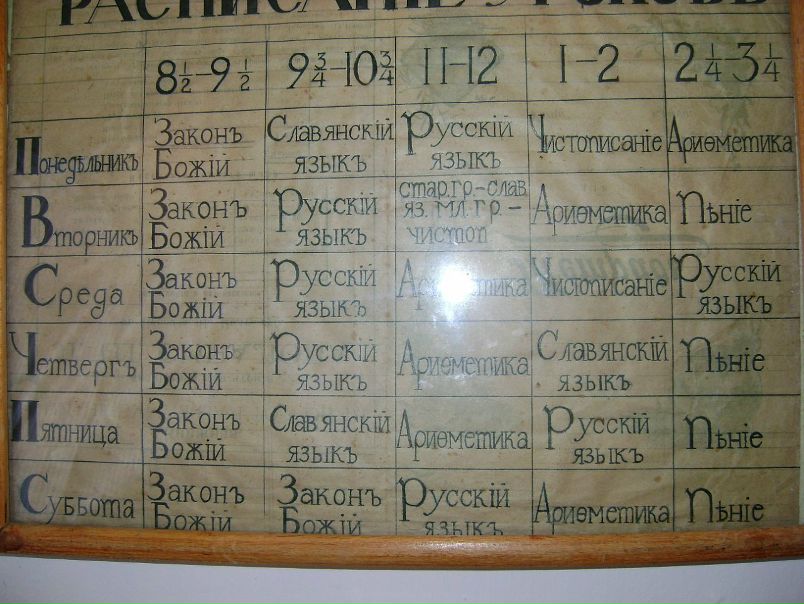 РАСПИСАНІЕ УРОКОВЪ
8 1/2-9 1/2 9 3/4-10 3/4 11-12 1-2 2 1/4-3 1/4
Понедѣльникъ Законъ Божій Славянскій языкъ Русскій языкъ Чистописаніе Ариѳметика
Вторникъ Законъ Божій Русскій языкъ стар.гр.-слав. яз. мл. гр.- чистоп Ариѳметика Пѣніе
Среда Законъ Божій Русскій языкъ Ариѳметика Чистописаніе Русскій языкъ
Четвергъ Законъ Божій Русскій языкъ Ариѳметика Славянскій языкъ Пѣніе
Пятница Законъ Божій Славянскій языкъ Ариѳметика Русскій языкъ Пѣніе
Суббота Законъ Божій Законъ Божій Русскій языкъ Ариѳметика Пѣніе